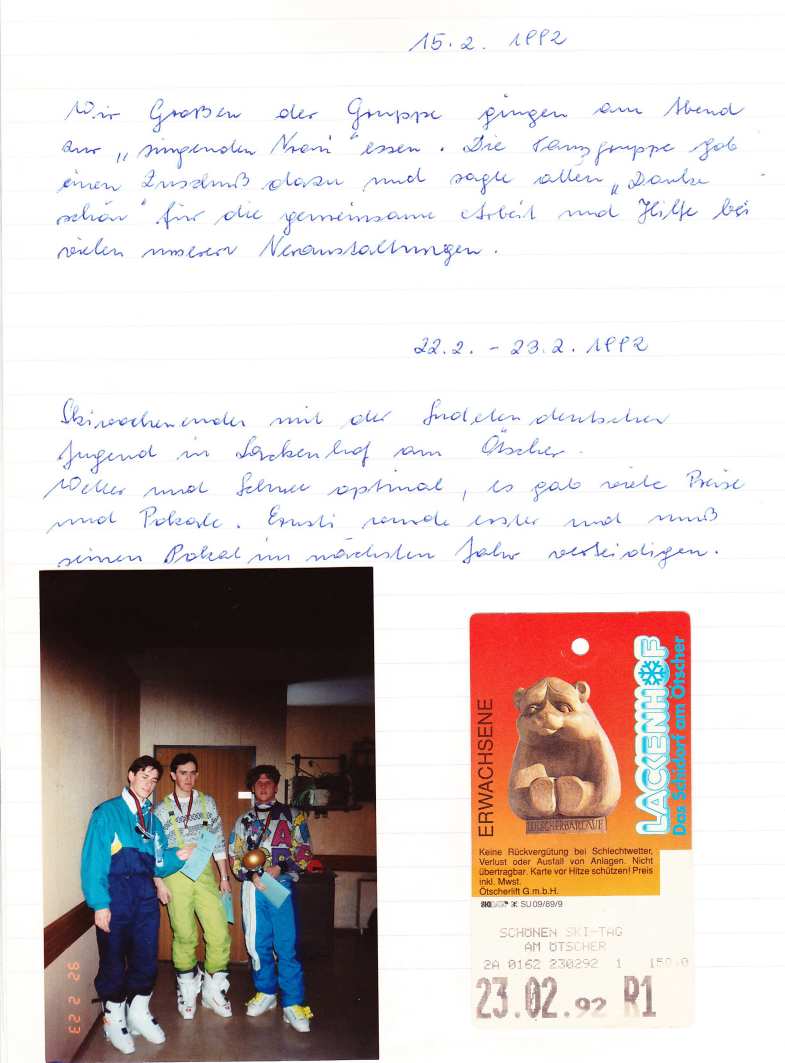 15.2. 1992
Wir Großen der Gruppe gingen am Abend
zur „singenden Wrani“ essen. Die Tanzgruppe gab
einen Zuschuß dazu und sagte allen „Danke
schön“ für die gemeinsame Arbeit und Hilfe bei
vielen unserern Veranstaltungen.
22.2. - 23.2. 1992
Skiwochenender mit der Sudetendeutschen
Jugend in Lackenhof am Ötscher.
Wetter und Schnee optimal, es gab viele Preise
und Pokale. Ernsti wurde erster und muß
seinen Pokal im nächsten Jahr verteidigen.
92 2 23
ERWACHSENE
LACKENHOF
Das Schidorf am Ötscher
Keine Rückvergütung bei Schlechtwetter,
Verlust oder Ausfall von Anlagen. Nicht
übertragbar. Karte vor Hitze schützen! Preis
inkl. Mwst.
Ötscherlift G.m.b.H.
SU 09/89/9
SCHÖNEN SKI-TAG
AM ÖTSCHER
2A 0162 230292 1
23.02.92 R1